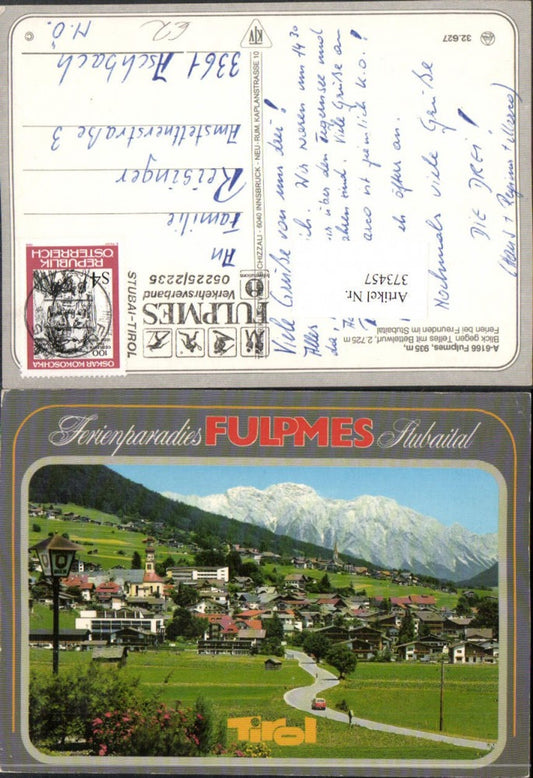 32.627
A-6166 Fulpmes, 935 m,
Blick gegen Telfes mit Bettelwurf, 2.725 m
Ferien bei Freunden im Stubaital
Viele Grüße von uns drei!
Alles
ich. Wir waren um 14³⁰
über den
und
Viele Grüße an
arco ist ziemlich k.o.!
öfter an.
Nochmals viele Grüße
DIE DREI!
Artikel Nr.
373457
CHIZZALI - 6040 INNSBRUCK - NEU-RUM, KAPLANSTRASSE 10
KJV
STUBAI-TIROL
FULPMES
Verkehrsverband
05225/2235
REPUBLIK
ÖSTERREICH
S4
100
OSKAR KOKOSCHKA
An
Familie
Reisinger
Amstettnerstraße 3
3361 Aschbach
N.Ö.
Ferienparadies FULPMES Stubaital
Tirol